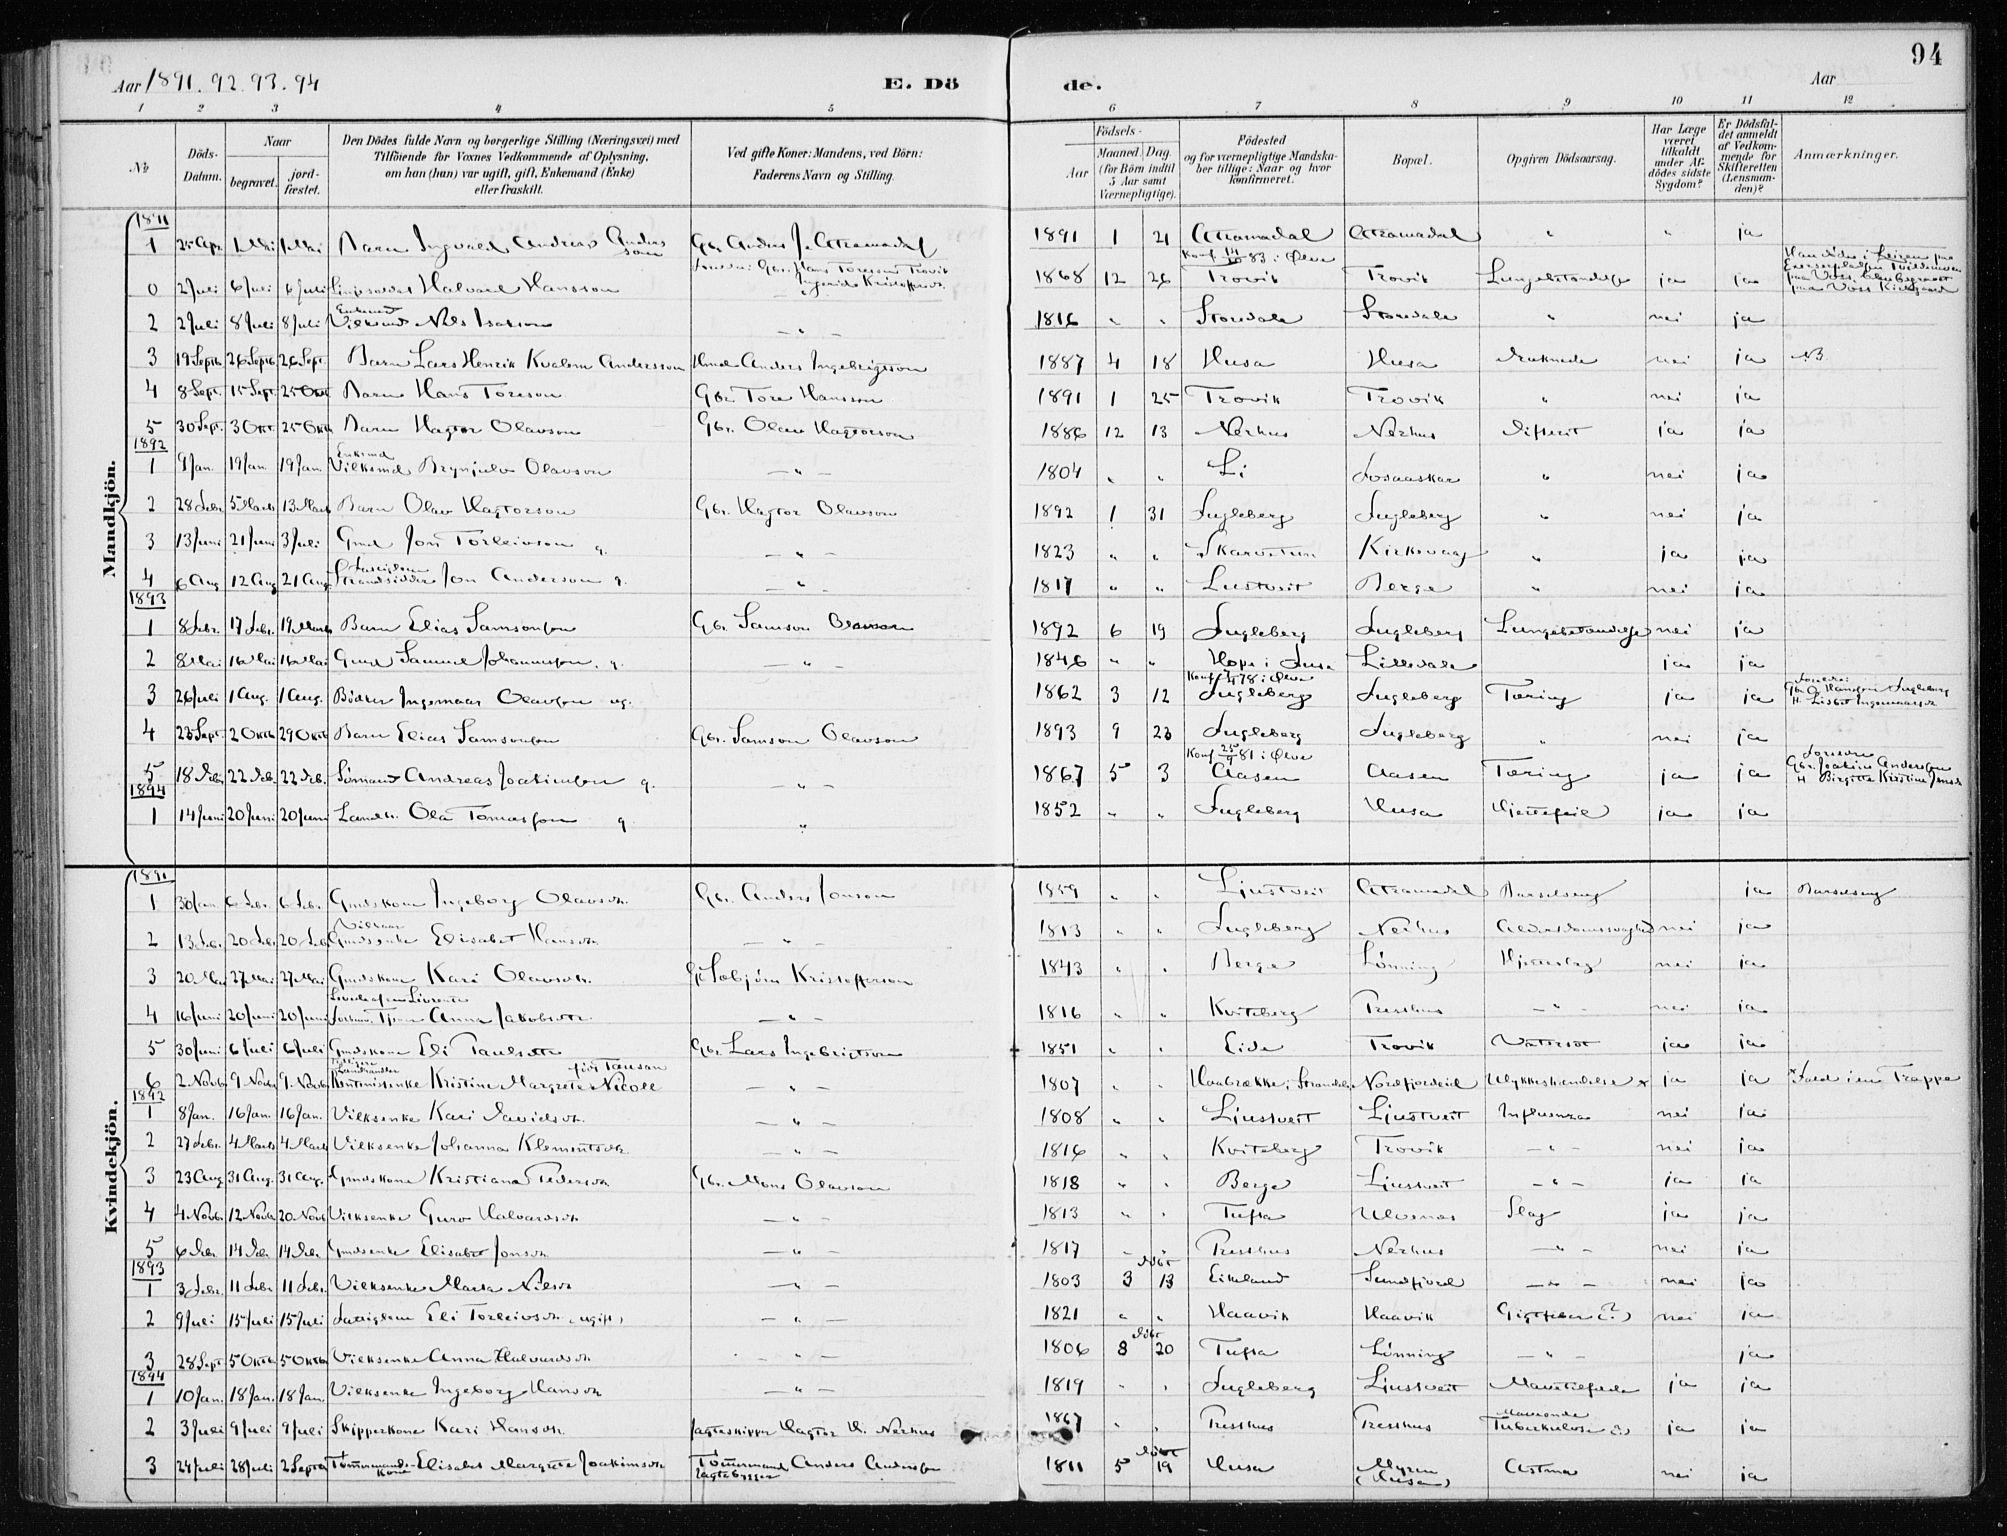 94
Aar 1891. 92. 93. 94
E. Dö
de.
Aar
1 2 3 4 5 6 7 8 9 10 11 12
No
Döds-Datum.
Naar
begravet.
jord-fæstet.
Den Dödes fulde Navn og borgerlige Stilling (Næringsvei) med
Tilföiende for Voxnes Vedkommende af Oplysning,
om han (hun) var ugift, gift, Enkemand (Enke)
eller fraskilt.
Ved gifte Koner: Mandens, ved Börn:
Faderens Navn og Stilling.
Födsels-
Aar
Maaned. Dag.
(for Börn indtil
5 Aar samt
Værnepligtige).
Födested
og for værnepligtige Mandska-
ber tillige: Naar og hvor
Konfirmeret.
Bopæl.
Opgiven Dödsaarsag.
Har Læge
været
tilkaldt
under Af-
dödes sidste
Sygdom?
Er Dödsfal-
det anmeldt
af Vedkom-
mende for
Skifteretten
(Lensman-
den)?
Anmærkninger.
Mandkjön.
1891
1 25 Apr. 1 Mai 1 Mai Barn Ingvald Andreas Andersson Gbr. Anders J. 1891 1 21 " " ja
Konf. 83 i Ølve
0 2 Juli 6 Juli 6 Juli Halvard Hansson 1868 12 26 Trovik Trovik Lungebetændelse ja ja
2 2 Juli 8 Juli 8 Juli Enkemd Vilksmd Nils Isakson — " — 1816 " " Storedale Storedale " nei ja
3 19 Septb 26 Septb 26 Sept. Barn Lars Henrik Kvalem Andersson Hmd Anders Ingebrigtson 1887 4 18 Husa Husa Druknede nei ja NB.
4 8 Sept. 15 Sept. 25 Okt Barn Hans Toreson Gbr. Tore Hansson 1891 1 25 Trovik Trovik " nei ja
5 30 Sept. 3 Okt. 25 Okt Barn Hagtor Olavson Gbr. Olav Hagtorson 1886 12 13 Nerhus Nerhus Difterit ja ja
1892
1 9 Jan. 19 Jan. 19 Jan. Enkemd Vilksmd Brynjulv Olavson — " — 1804 " " Li " nei ja
2 28 Febr. 5 Marts 13 Marts Barn Olav Hagtorson Gbr. Hagtor Olavson 1892 1 31 Fugleberg Fugleberg " nei ja
3 13 Juni 21 Juni 3 Juli Gmd Jon Torleivson g. — " — 1823 " " Kirkevaag " ja ja
4 6 Aug 12 Aug 21 Aug. Strandsidder Jon Anderson g. " 1817 " " Berge " nei ja
1893
1 8 Febr. 17 Febr. 19 Marts Barn Elias Samsonson Gbr. Samson Olavson 1892 6 19 Fugleberg Fugleberg Lungebetændelse nei ja
2 8 Mai 16 Mai 16 Mai Gmd Samuel Johannesson g. — " — 1846 " " Hope i Fuse Lilledale ja ja
Konf. 78 i Ølve
3 26 Juli 1 Aug. 1 Aug. Bødker Ingemaar Olavson ug. 1862 3 12 Fugleberg Fugleberg Tæring ja ja
4 23 Sept. 2 Oktb 29 Oktb Barn Elias Samsonson Gbr. Samson Olavson 1893 9 23 Fugleberg Fugleberg " nei ja
Konf. 25 81 i Ølve
5 18 Deb. 22 Deb. 22 Deb. Sømand Andreas Joakimson g. — " — 1867 5 3 Aasen Aasen Tæring ja ja Gbr. Joakim Anderson
Birgitte Kristine
1894
1 14 Juni 20 Juni 20 Juni Landh. Ola Tomasson g " 1852 " " Fugleberg Husa Hjertefeil ja ja
Kvindekjön.
1891
1 30 Jan. 6 Febr. 6 Febr. Gmdskone Ingeborg Olavsdtr. Gbr. Anders Jonson 1859 " " Ljustveit Barselseng ja Barselseng
2 13 Feb. 20 Feb. 20 Feb. Gmdsenke Elisabet Hansdtr — " — 1813 " " Fugleberg Nerhus Alderdomssvaghed nei ja
3 20 Mai 27 Mai 27 Mai Gmdskone Kari Olavsdtr. Kristofferson 1843 " " Berge Lønning Hjerteslag nei ja
4 16 Juni 20 Juni 20 Juni Anna Jakobsdtr. — " — 1816 " " Kviteberg Presthus — " — nei ja
5 30 Juni 6 Juli 6 Juli Gmdskone Eli Paulsdtr Gbr. Lars Ingebrigtson 1851 " " Eide Trovik Vatersot ja ja
6 2 Novb. 9 Novb. 9 Novb. Kristine Margrete Nicoll — " — 1807 " " Nordfjordeid Ulykkeshændelse * ja ja * Fald i en Trappe
1892
1 8 Jan. 16 Jan. 16 Jan. Vilksenke Kari Davidsdtr. — " — 1808 " " Ljustveit Ljustveit Influenza nei ja
2 27 Febr. 4 Marts 4 Marts Vilksenke Johanna Klementsdtr. — " — 1816 " " Kviteberg Trovik — " — nei ja
3 23 Aug 31 Aug. 31 Aug. Gmdskone Kristiana Pedersdtr Gbr. Mons Olavson 1818 " " Berge Ljustveit — " — ja ja
4 4 Novb. 12 Novb 20 Novb Vilksenke Guro Halvardsdtr — " — 1813 " " Tufta Ulvenes Slag ja ja
5 6 Deb 14 Deb 14 Deb Gmdsenke Elisabet Jonsdtr. — " — 1817 " " Presthus Nerhus — " — nei ja
1893
1 3 Febr. 11 Febr 11 Febr. Vilksenke Marta Nilsdtr — " — 1803 Døbt 3 13 Eikeland Sundfjord — " — nei ja
2 9 Juli 15 Juli 15 Juli Fattiglem Eli Torleivsdtr. (ugift) — " — 1821 " " Haavik Haavik Gigtfeber (?) nei ja
3 28 Sept 5 Oktb 5 Oktb Vilksenke Anna Halvardsdtr. — " — 1806 Døbt 8 20 Tufta Lønning — " — ja
1894
1 10 Jan. 18 Jan. 18 Jan. Vilksenke Ingeborg Hansdtr — " — 1819 " " Fugleberg Ljustveit ja ja
2 3 Juli 9 Juli 9 Juli Skipperkone Kari Hansdtr. Jagteskipper Hagtor H. Nerhus 1867 " " Presthus Presthus Tuberkulose ja ja
3 24 Juli 28 Juli 2 Septb Tømmermandskone Elisabet Margrete Joakimsdtr Tømmermand Jagtebygger Anders Anderson 1811 Døbt 5 19 Husa Myren (Husa) Astma nei ja